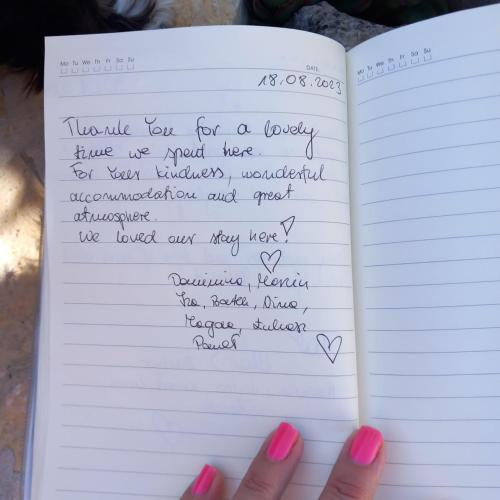 Mo Tu We Th Fr Sa Su
DATE:
18.08.2023
Thank You for a lovely
time we spend here.
For Your kindness, wonderful
accommodation and great
atmosphere.
We loved our stay here!
Dominina, Marcin
Iza, Bartek, Dina,
Magda, Łukasz
Paweł
Mo Tu We Th Fr Sa Su